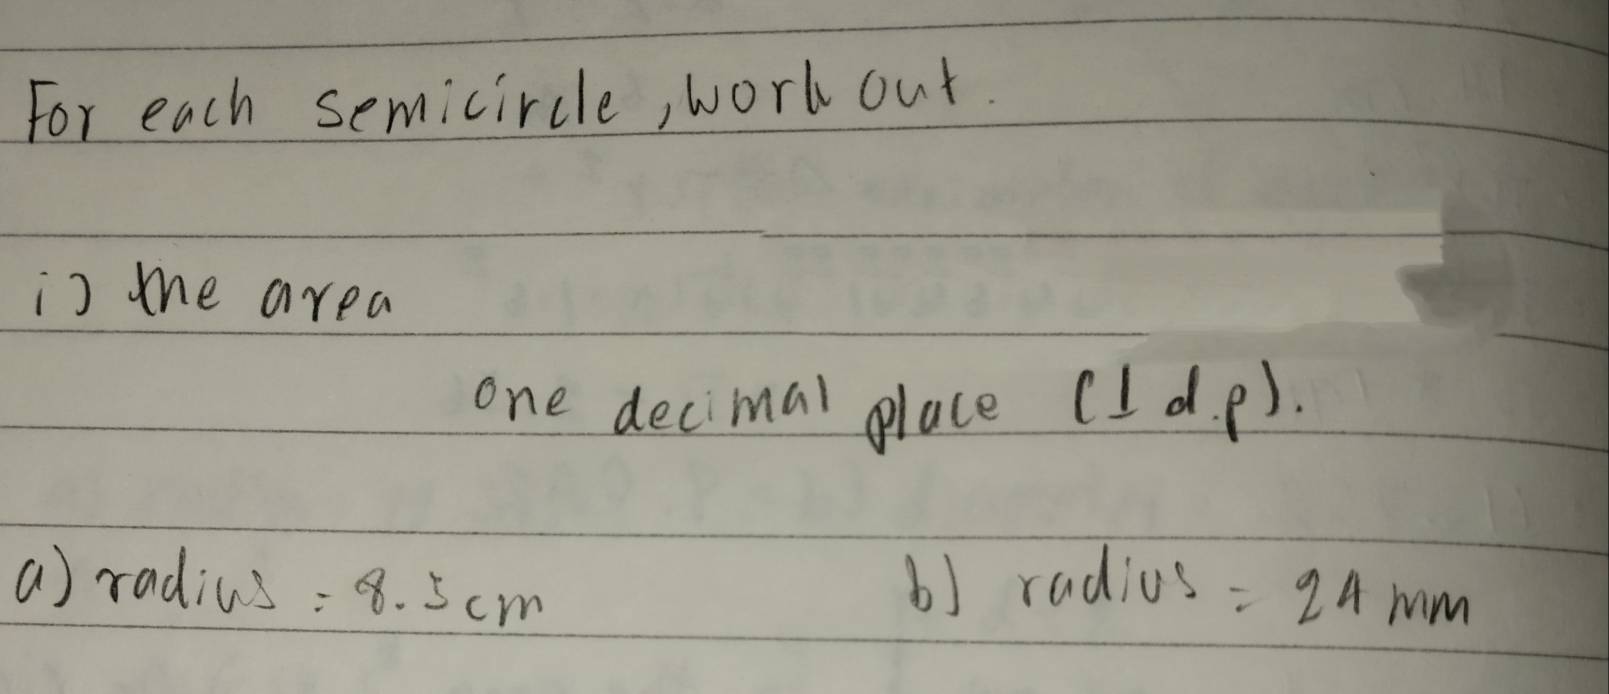 For each semicircle, work out.
i) the area
one decimal place (1 d.p).
a) radius = 8.5 cm b) radius = 24 mm